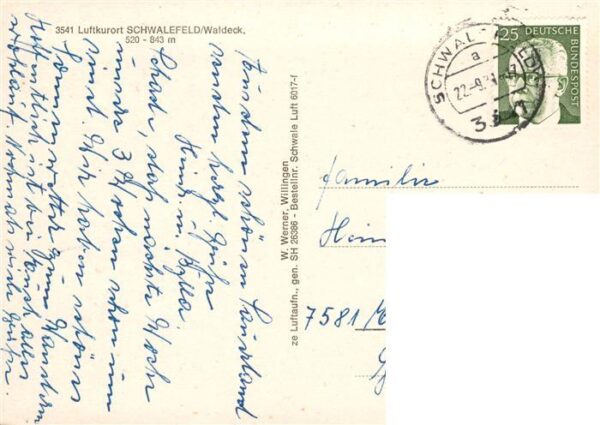 3541 Luftkurort SCHWALEFELD/Waldeck,
520 - 843 m
Aus dem schönen Sauerland
senden herzl. Grüße
Schade, daß nächste Woche
unsere 3 Wochen schon um
sind. Wir haben schönes
Sommerwetter zum Wandern
Hoffentlich ist bei Euch alles
wohlauf. Nochmals viele Grüße
W. Werner, Willingen
ze Luftaufn., gen. SH 26366 - Bestellnr. Schwale Luft 6017-f
SCHWAL
a
22.-9.
35
25
DEUTSCHE
BUNDESPOST
Familie
Hein
7581/